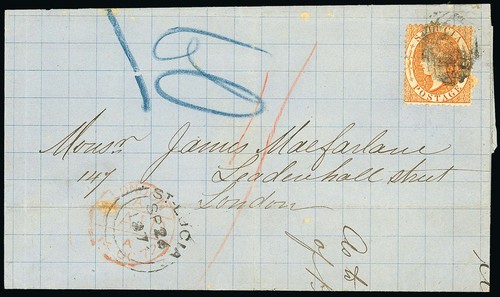 10
ST LUCIA
POSTAGE
Messrs James Macfarlane
147 Leadenhall street
London
ST. LUCIA
SP 26
As to
of